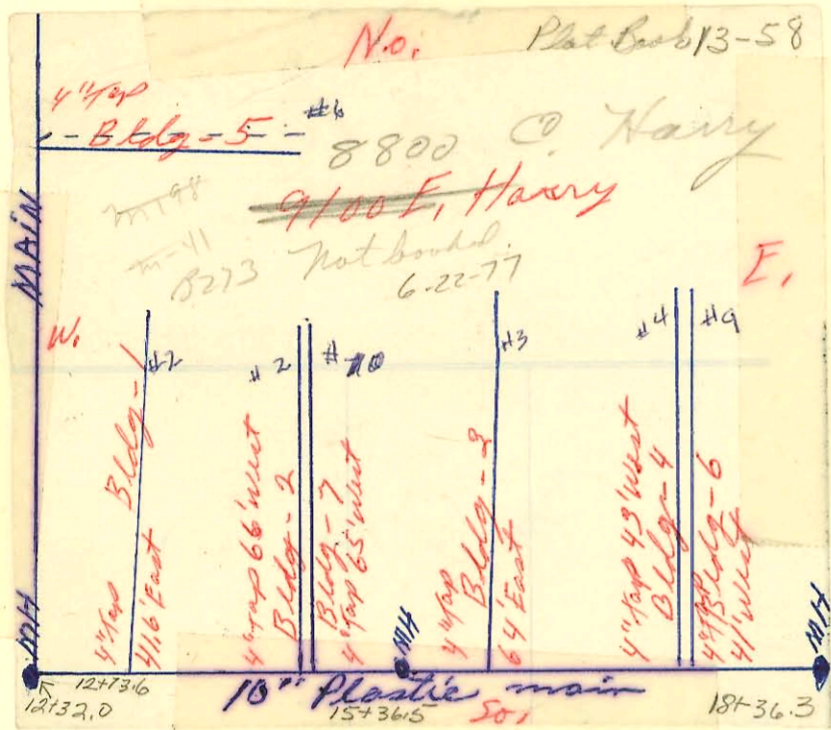 No.
Plat Book 13-58
4" Tap
Bldg-5
#6
8800 E. Harry
9100 E, Harry
m-98
m-41
B273
Not booked.
6-22-77
MAIN
W.
E.
#2
# 2
# 10
#3
#4
#9
4" Tap
Bldg-1
41.6' East
4" Tap 66' West
Bldg-2
Bldg-7
4" Tap 65' West
4" Tap
Bldg-3
64' East
4" Tap 43' West
Bldg-4
4" Tap
Bldg-6
41' West
MH
MH
MH
12+73.6
12+32.0
10" Plastic main
15+36.5
So.
18+36.3